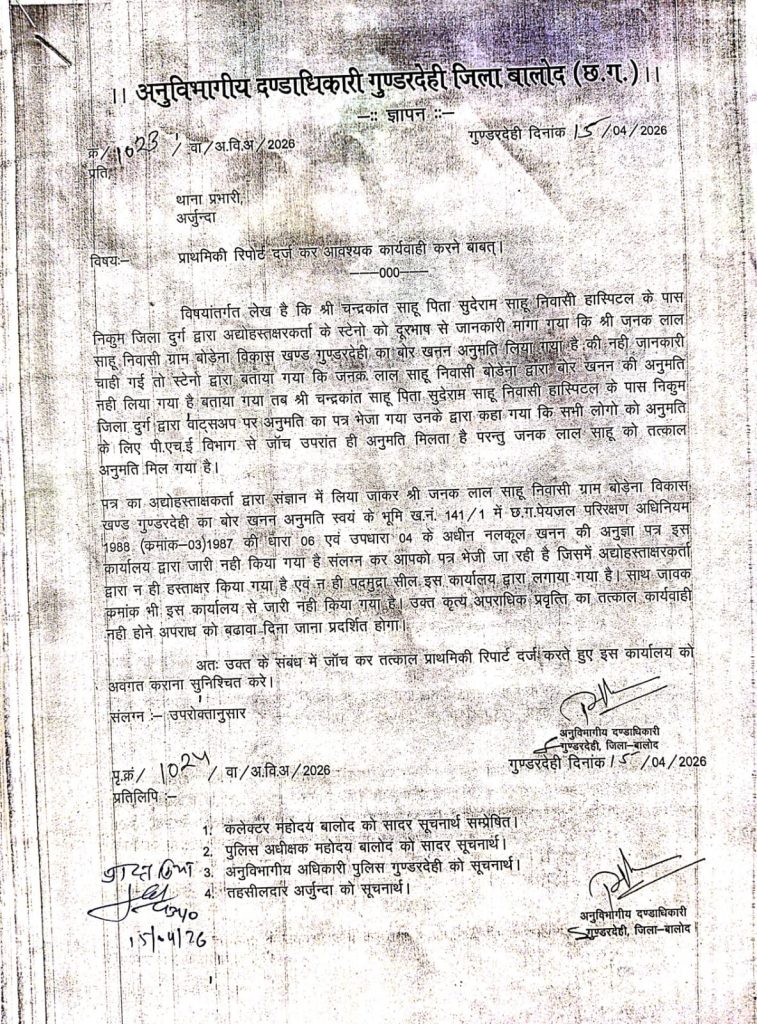 ।। अनुविभागीय दण्डाधिकारी गुण्डरदेही जिला बालोद (छ.ग.)।।
—:: ज्ञापन ::—
क्र/1023/वा/अ.वि.अ/2026
गुण्डरदेही दिनांक 15/04/2026
प्रति,
थाना प्रभारी,
अर्जुन्दा
विषयः– प्राथमिकी रिपोर्ट दर्ज कर आवश्यक कार्यवाही करने बाबत्।
——000——
विषयांतर्गत लेख है कि श्री चन्द्रकांत साहू पिता सुदेराम साहू निवासी हास्पिटल के पास
निकुम जिला दुर्ग द्वारा अद्योहस्तक्षरकर्ता के स्टेनो को दूरभाष से जानकारी मांगा गया कि श्री जनक लाल
साहू निवासी ग्राम बोड़ेना विकास खण्ड गुण्डरदेही का बोर खनन अनुमति लिया गया है की नही जानकारी
चाही गई तो स्टेनो द्वारा बताया गया कि जनक लाल साहू निवासी बोडेना द्वारा बोर खनन की अनुमति
नही लिया गया है बताया गया तब श्री चन्द्रकांत साहू पिता सुदेराम साहू निवासी हास्पिटल के पास निकुम
जिला दुर्ग द्वारा वाट्सअप पर अनुमति का पत्र भेजा गया उनके द्वारा कहा गया कि सभी लोगो को अनुमति
के लिए पी.एच.ई विभाग से जॉच उपरांत ही अनुमति मिलता है परन्तु जनक लाल साहू को तत्काल
अनुमति मिल गया है।
पत्र का अद्योहस्ताक्षकर्ता द्वारा संज्ञान में लिया जाकर श्री जनक लाल साहू निवासी ग्राम बोड़ेना विकास
खण्ड गुण्डरदेही का बोर खनन अनुमति स्वयं के भूमि ख.नं. 141/1 में छ.ग.पेयजल परिरक्षण अधिनियम
1988 (कमांक–03)1987 की धारा 06 एवं उपधारा 04 के अधीन नलकूल खनन की अनुज्ञा पत्र इस
कार्यालय द्वारा जारी नही किया गया है संलग्न कर आपको पत्र भेजी जा रही है जिसमें अद्योहस्ताक्षरकर्ता
द्वारा न ही हस्ताक्षर किया गया है एवं न ही पदमुद्रा सील इस कार्यालय द्वारा लगाया गया है। साथ जावक
कमांक भी इस कार्यालय से जारी नही किया गया है। उक्त कृत्य अपराधिक प्रवृत्ति का तत्काल कार्यवाही
नही होने अपराध को बढावा दिना जाना प्रदर्शित होगा।
अतः उक्त के संबंध में जॉच कर तत्काल प्राथमिकी रिपार्ट दर्ज करते हुए इस कार्यालय को
अवगत कराना सुनिश्चित करे।
संलग्न :– उपरोक्तानुसार
अनुविभागीय दण्डाधिकारी
गुण्डरदेही, जिला–बालोद
पृ.क्रं/ 1024/ वा/अ.वि.अ/2026
गुण्डरदेही दिनांक 15/04/2026
प्रतिलिपि :–
1. कलेक्टर महोदय बालोद को सादर सूचनार्थ सम्प्रेषित।
2. पुलिस अधीक्षक महोदय बालोद को सादर सूचनार्थ।
3. अनुविभागीय अधिकारी पुलिस गुण्डरदेही को सूचनार्थ।
4. तहसीलदार अर्जुन्दा को सूचनार्थ।
15/04/26
अनुविभागीय दण्डाधिकारी
गुण्डरदेही, जिला–बालोद